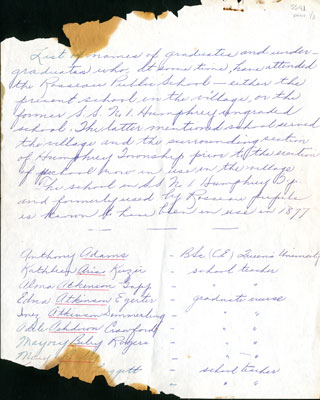 List of names of graduates and under-
graduates who, at some time, have attended
the Rosseau Public School — either the
present school in the village, or the
former S.S. No 1 Humphrey ungraded
school. The latter mentioned school served
the village and the surrounding section
of Humphrey Township prior to the erection
of school now in use in the village
The school in S.S. No 1 Humphrey Tp.
and formerly used by Rosseau pupils
is known to have been in use in 1877
Anthony Adams - B.Sc (CE) Queens University
Kathleen - school teacher
Alma Atkinson - "
Edna Atkinson Egerter - graduate nurse
Inez Atkinson - " "
Adele Crawford - " "
Marjory Rogers - " "
Mary - " "
- school teacher
- "